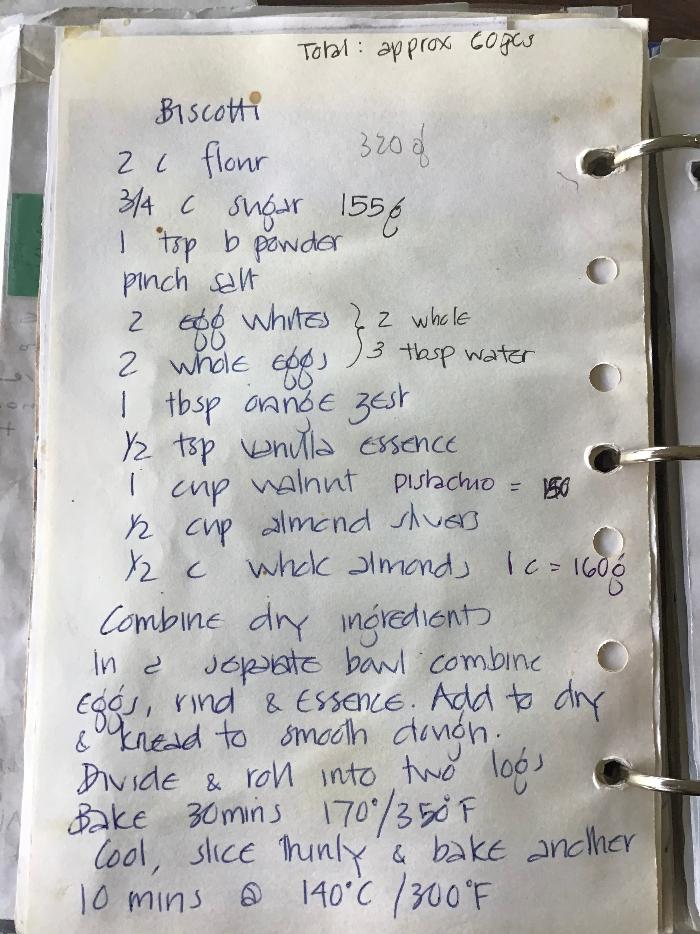 Total: approx 60pcs
Biscotti
2 c flour 320g
3/4 c sugar 155g
1 tsp b powder
pinch salt
2 egg whites } 2 whole
2 whole eggs } 3 tbsp water
1 tbsp orange zest
1/2 tsp vanilla essence
1 cup walnut pistachio = 150
1/2 cup almond slivers
1/2 c whole almonds 1 c = 160g
Combine dry ingredients
In a separate bowl combine
eggs, rind & essence. Add to dry
& knead to smooth dough.
Divide & roll into two logs
Bake 30mins 170°/350°F
Cool, slice thinly & bake another
10 mins @ 140°C /300°F